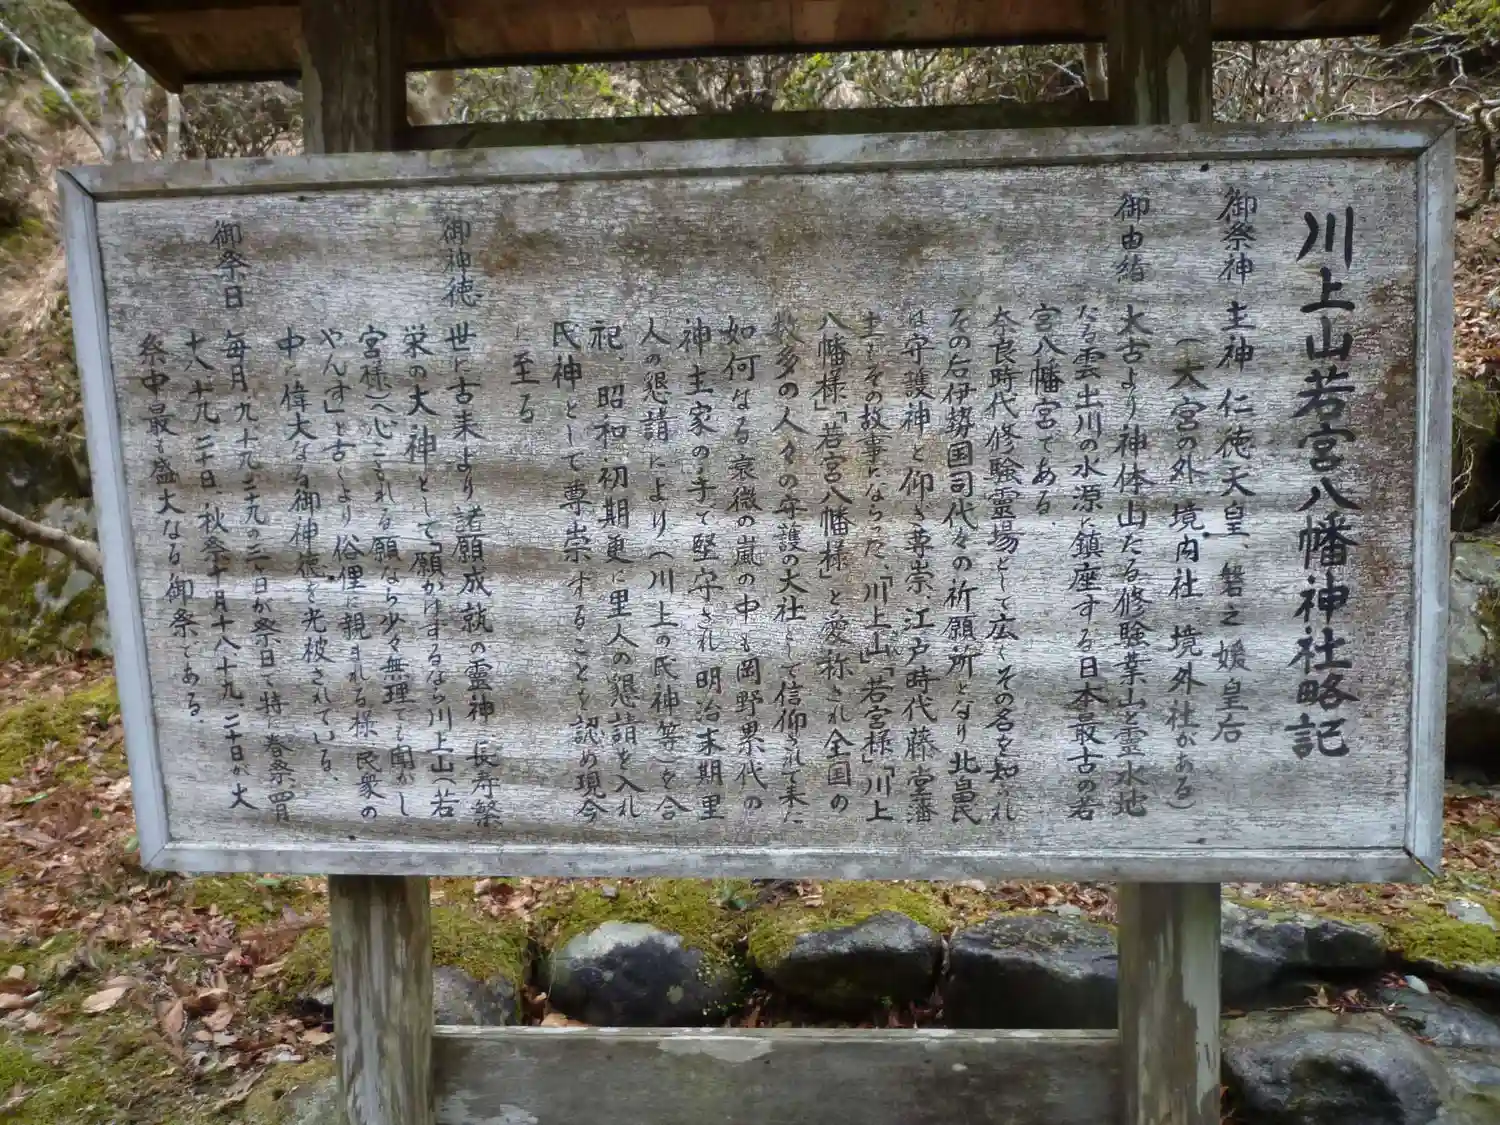 川上山若宮八幡神社略記
御祭神 主神 仁徳天皇、磐之媛皇后
(大宮の外 境内社 境外社がある)
御由緒 太古より神体山たる修験業山と霊水地
たる雲出川の水源に鎮座する日本最古の若
宮八幡宮である、
奈良時代修験霊場として広くその名を知られ
その后伊勢国司代々の祈願所となり北畠氏
は守護神と仰ぎ尊崇、江戸時代藤堂藩
主もその故事にならった、「川上山」「若宮様」「川上
八幡様」「若宮八幡様」と愛称され全国の
数多の人々の守護の大社として信仰されて来た
如何なる衰微の嵐の中も岡野累代の
神主家の手で堅守され 明治末期里
人の懇請により(川上の氏神等)を合
祀、昭和初期更に里人の懇請を入れ
氏神として尊崇することを認め現今
に至る
御神徳 世に古来より諸願成就の霊神 長寿繁
栄の大神として「願かけするなら川上山(若
宮様)へ心こもれる願なら少々無理でも聞かし
やんす」と古くより俗俚に親まれる様 民衆の
中に偉大なる御神徳を光被されている、
御祭日 毎月、九十九、二十九の三ヶ日が祭日で特に春祭、四月
十八十九、二十日、秋祭十月十八十九、二十日が大
祭中最も盛大なる御祭である、